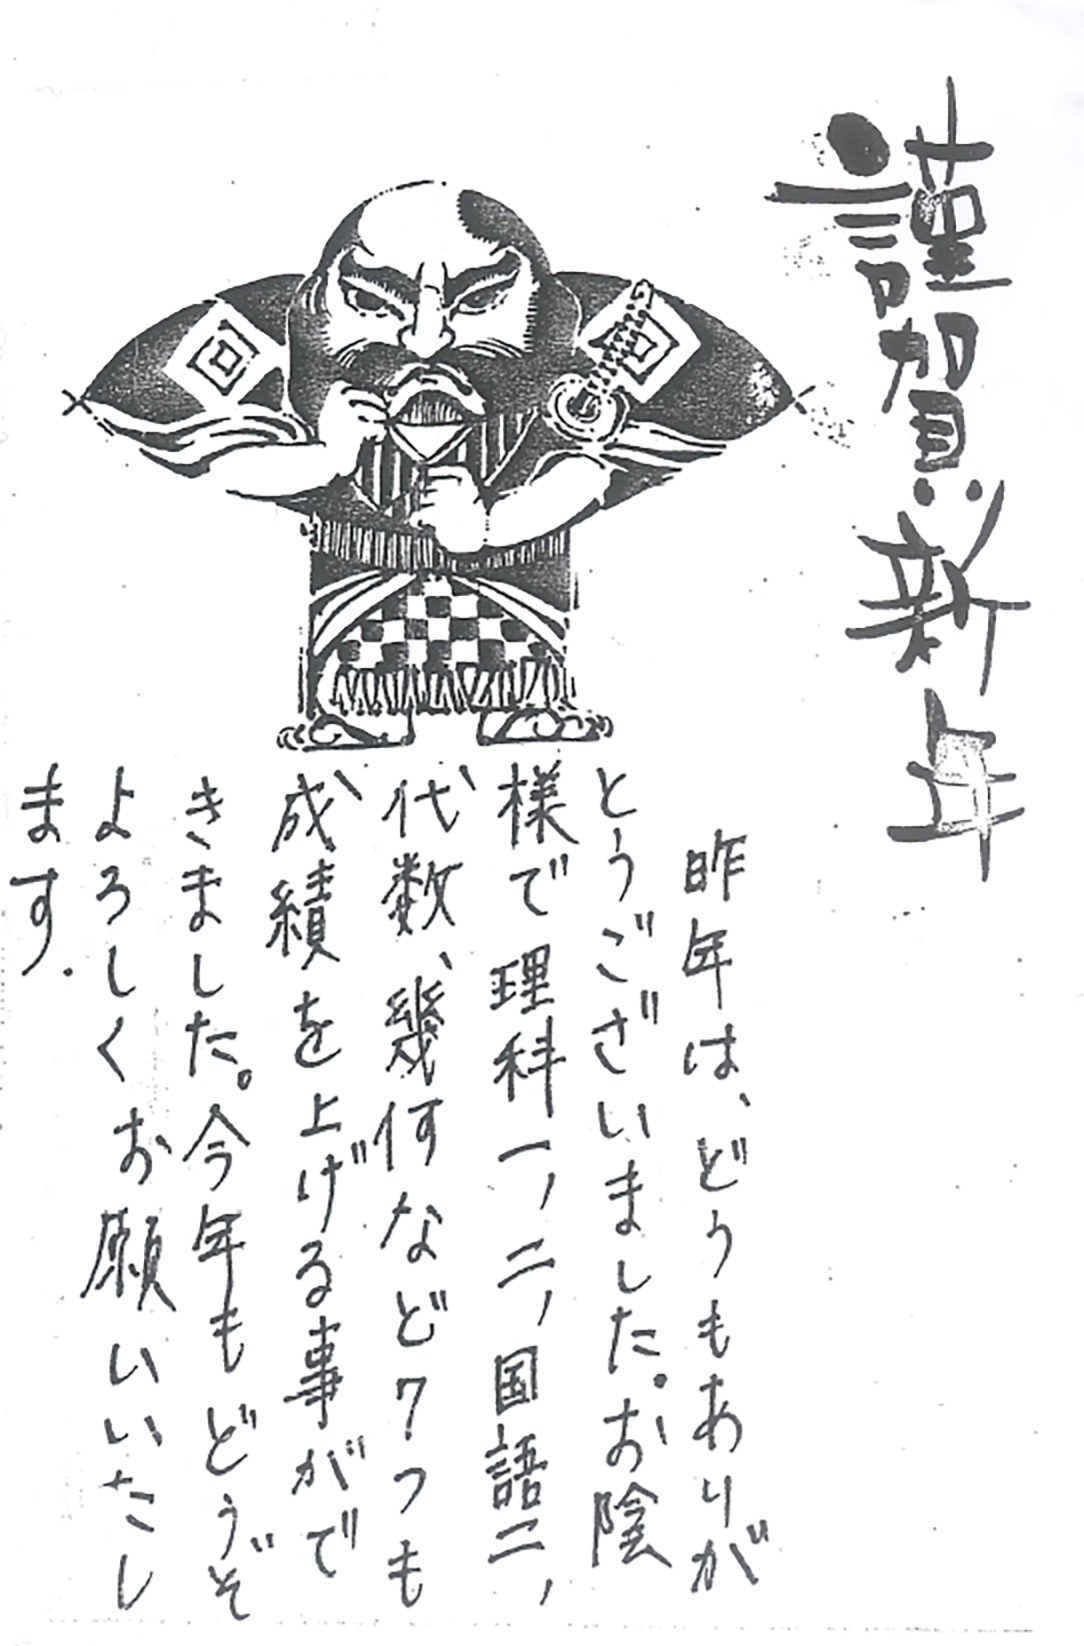 謹賀新年
昨年は、どうもありが
とうございました。お陰
様で理科一、二、国語二、
代数、幾何など7つも
成績を上げる事がで
きました。今年もどうぞ
よろしくお願いいたし
ます.